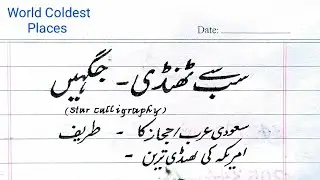 World Coldest
Places
Date:
سب سے ٹھنڈی - جگہیں
(Star Calligraphy)
سعودی عرب/حجاز کا - طریف
امریکہ کی ٹھنڈی ترین -